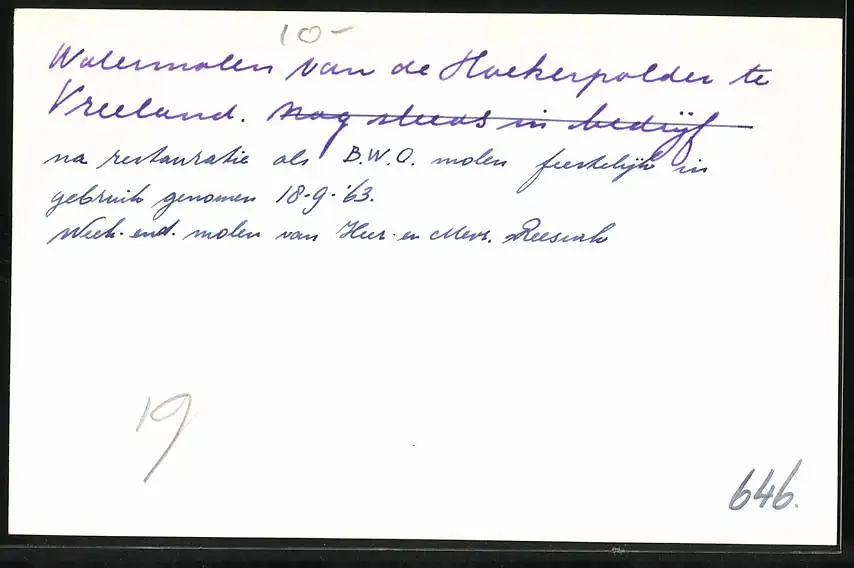 10-
Watermolen van de Hoekerpolder te
Vreeland. nog steeds in bedrijf
na restauratie als B.W.O. molen feestelijk in
gebruik genomen 18-9-'63.
Week-end. molen van Heer en Mevr. Reesink
19
646.